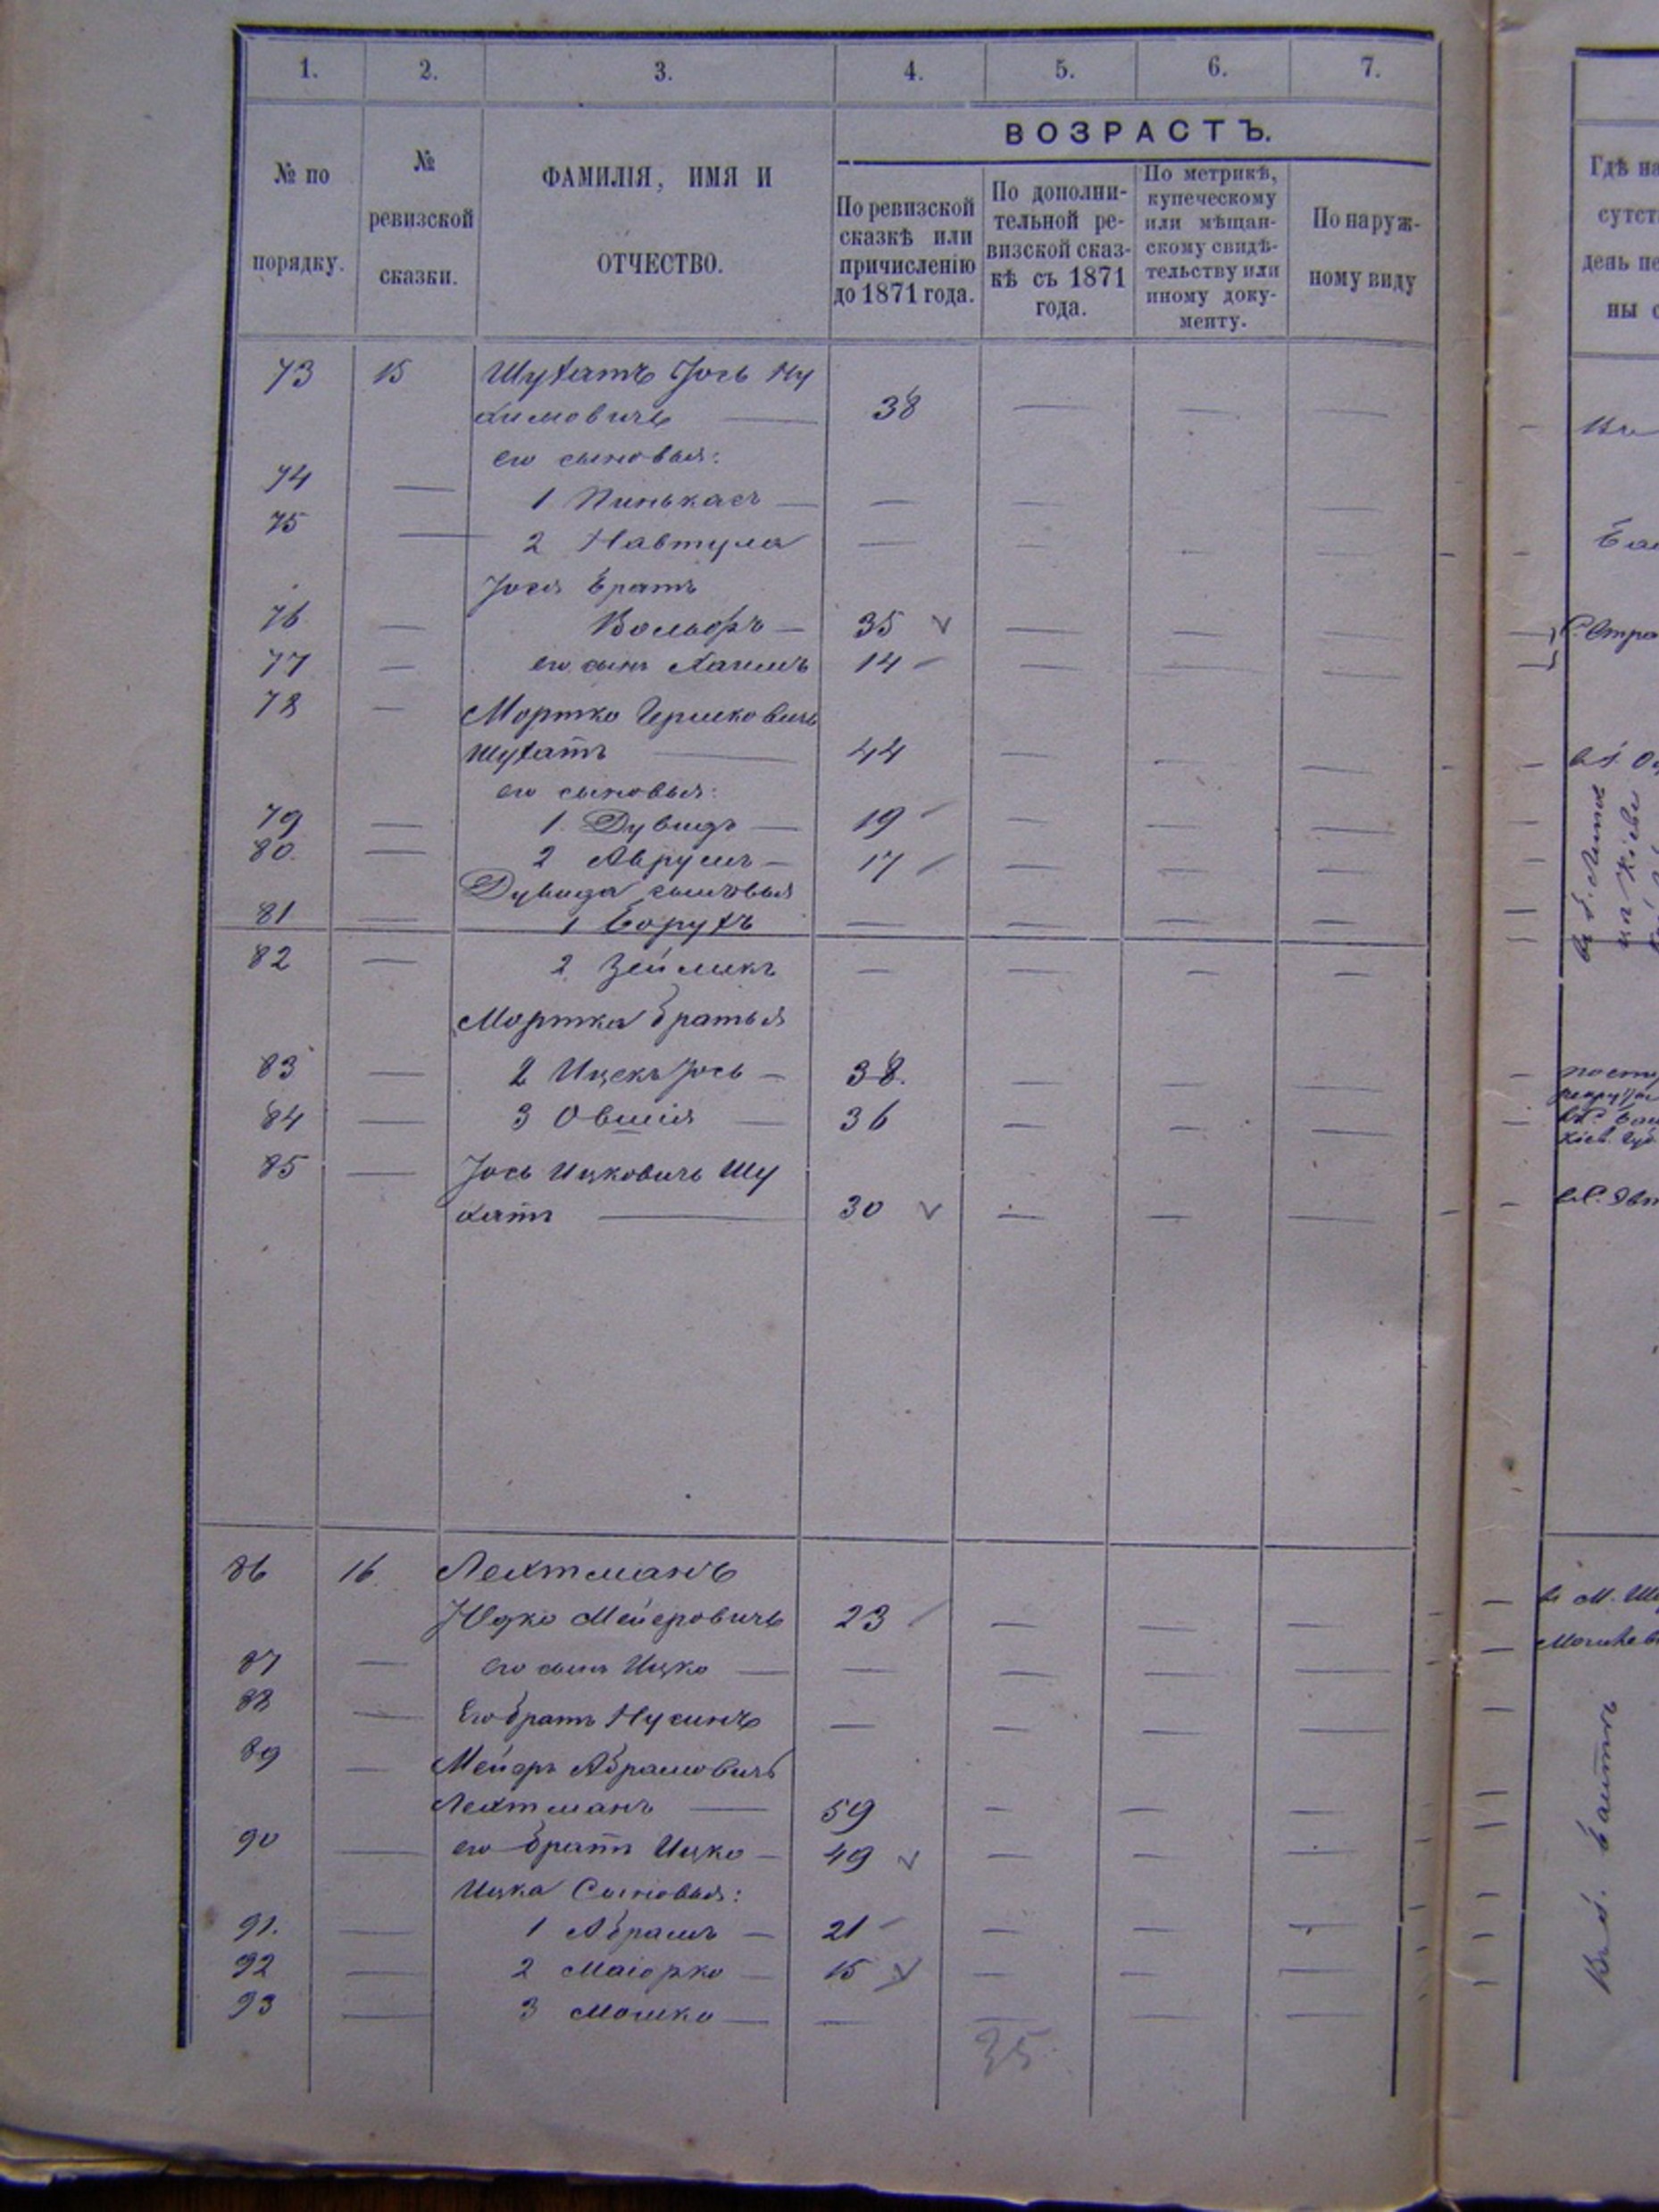 1. 2. 3. 4. 5. 6. 7.
№ по порядку.
№ ревизской сказки.
ФАМИЛІЯ, ИМЯ И ОТЧЕСТВО.
ВОЗРАСТЪ.
По ревизской сказкѣ или причисленію до 1871 года.
По дополни-
тельной ре-
визской сказ-
кѣ съ 1871
года.
По метрикѣ,
купеческому
или мѣщан-
скому свидѣ-
тельству или
иному доку-
менту.
По наруж-
ному виду
73 15 Шухатъ Іось Ну
химовичъ — 38 — — —
его сыновья:
74 — 1 Пинькасъ — — — —
75 — 2 Навтула — — — —
Іося братъ
76 — Вольфъ — 35 — — —
77 — его сынъ Хаимъ 14 — — —
78 — Мортко Гершковичъ
Шухатъ — 44 — — —
его сыновья:
79 — 1. Дувидъ — 19 — — —
80. — 2 Аврумъ — 17 — — —
Дувида сыновья
81 — 1 Борухъ — — — —
82 — 2 Зейликъ — — — —
Мортка братья
83 — 2 Ицекъ Іось — 38. — — —
84 — 3 Овшія — 36 — — —
85 — Іось Ицковичъ Шу
хатъ — 30 — — —
86 16. Лехтманъ
Юдко Мейеровичъ 23 — — —
87 — его сынъ Ицко — — — — —
88 — Его братъ Нусинъ — — — —
89 — Мейеръ Абрамовичъ
Лехтманъ — 59 — — —
90 — его братъ Ицко — 49 — — —
Ицка Сыновья:
91. — 1 Абрамъ — 21 — — —
92 — 2 Маіорко — 15 — — —
93 — 3 Мошко — — — — —
35
Гдѣ на
сутст
день пе
ны с